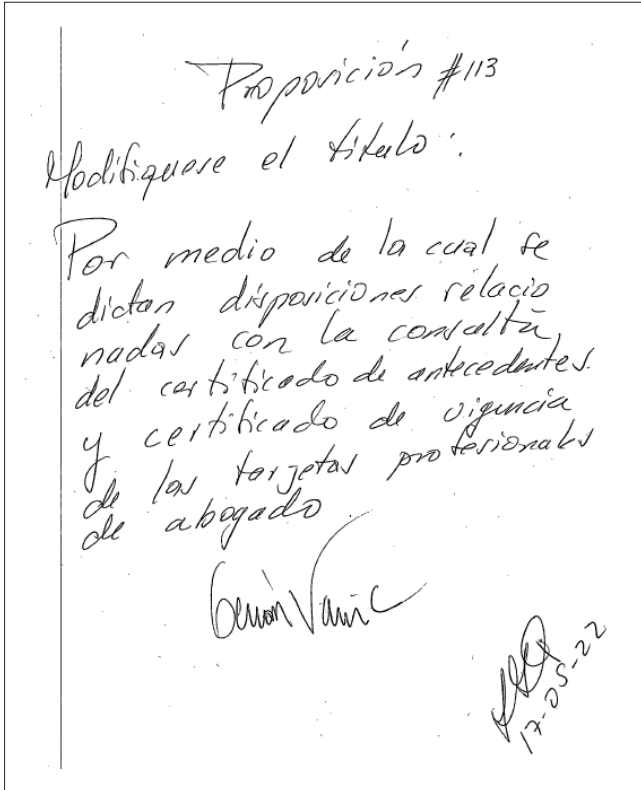 Proposición #113
Modifiquese el título:
Por medio de la cual se
dictan disposiciones relacio
nadas con la consulta
del certificado de antecedentes
y certificado de vigencia
de las tarjetas profesionales
de abogado
Germán Varón C
17-05-22